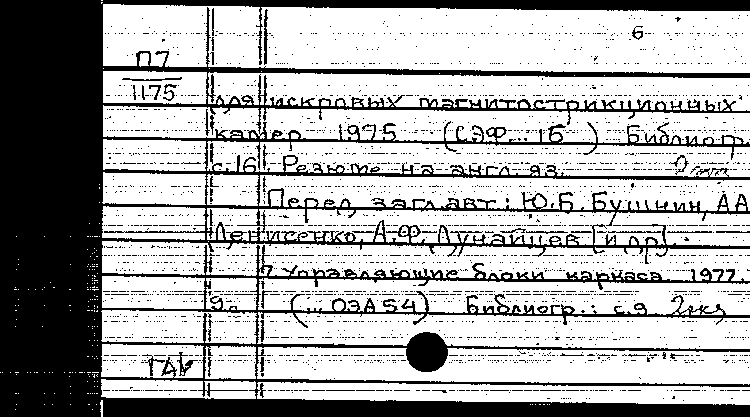 6
П7
1175
для искровых магнитострикционных
камер 1975 (СЭФ...16) Библиогр.
с.16. Резюме на англ. яз.
Перед загл. авт.: Ю.Б. Бушнин, А.А.
Денисенко, А.Ф. Дунайцев [и др].
7. Управляющие блоки каркаса. 1977.
9с. (...ОЭА 54) Библиогр.: с.9 2экз